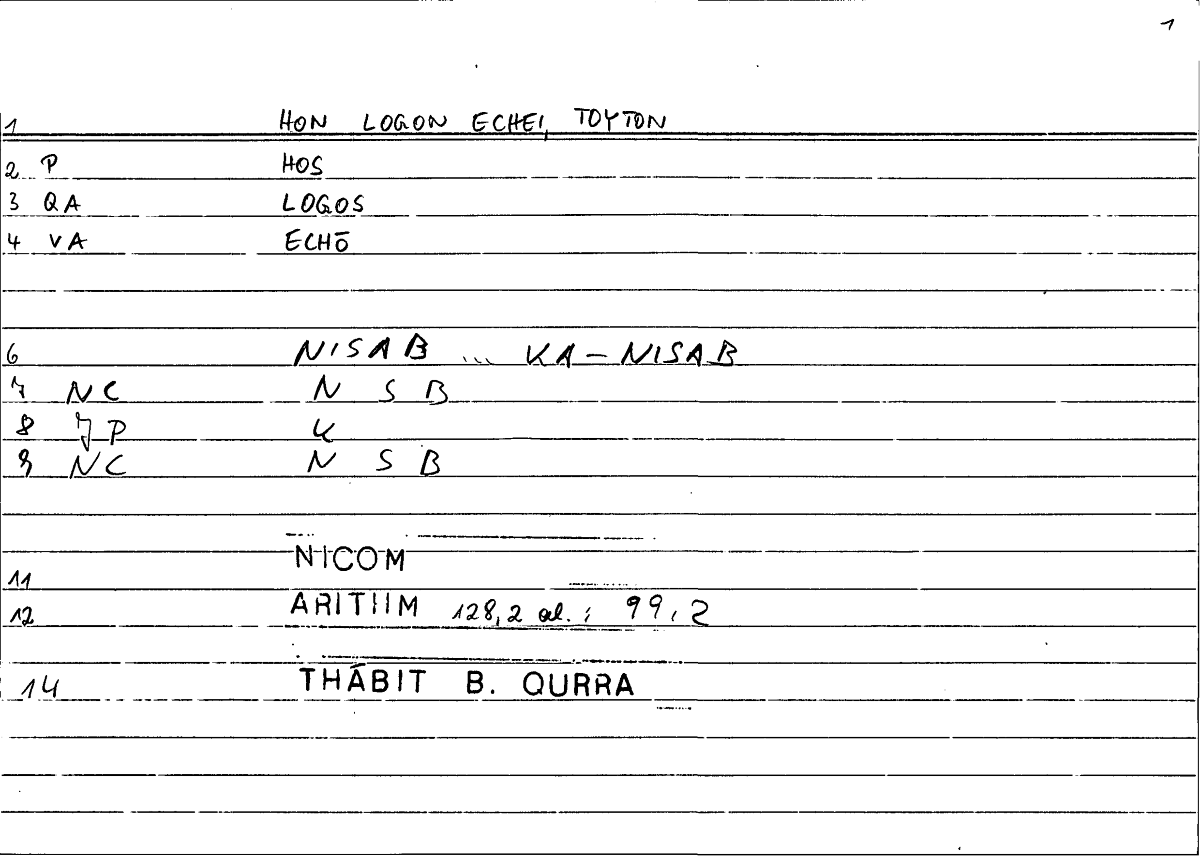 1
1 HON LOGON ECHEI, TOYTON
2 P HOS
3 QA LOGOS
4 VA ECHŌ
6 NISAB ... KA-NISAB
7 NC N S B
8 JP K
9 NC N S B
11 NICOM
12 ARITIIM 128,2 al. : 99,2
14 THĀBIT B. QURRA